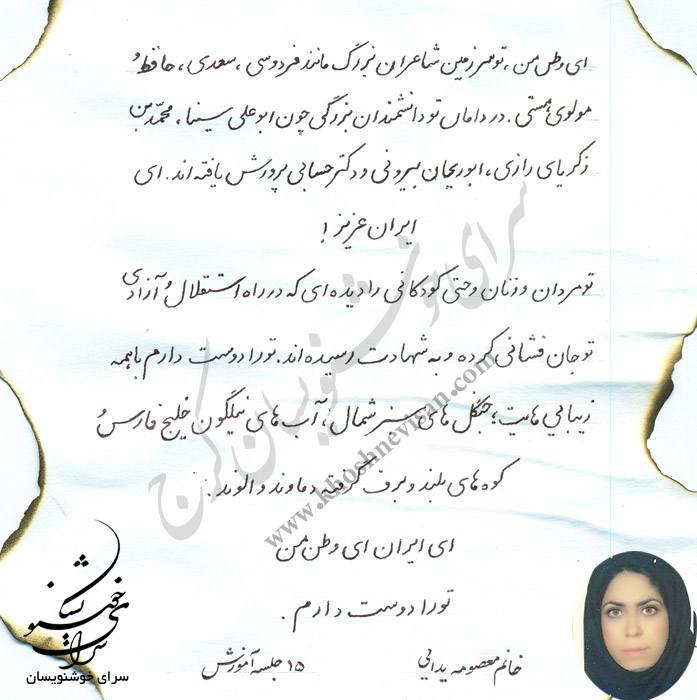 ای وطن من ، تو سرزمین شاعران بزرگ مانند فردوسی ، سعدی ، حافظ و
مولوی هستی . در دامان تو دانشمندان بزرگی چون ابو علی سینا ، محمّد بن
زکریای رازی ، ابوریحان بیرونی و دکتر حسابی پرورش یافته اند . ای
ایران عزیز !
تو مردان و زنان و حتی کودکانی را دیده ای که در راه استقلال و آزادی
تو جان فشانی کرده و به شهادت رسیده اند . تو را دوست دارم با همه
زیبایی هایت ؛ جنگل های سبز شمال ، آب های نیلگون خلیج فارس و
کوه های بلند و برف گرفته دماوند و الوند .
ای ایران ای وطن من
تو را دوست دارم .
خانم معصومه یدایی
۱۵ جلسه آموزش
سرای خوشنویسان
سرای خوشنویسان
سرای خوشنویسان کرج
www.khoshnevisan.com